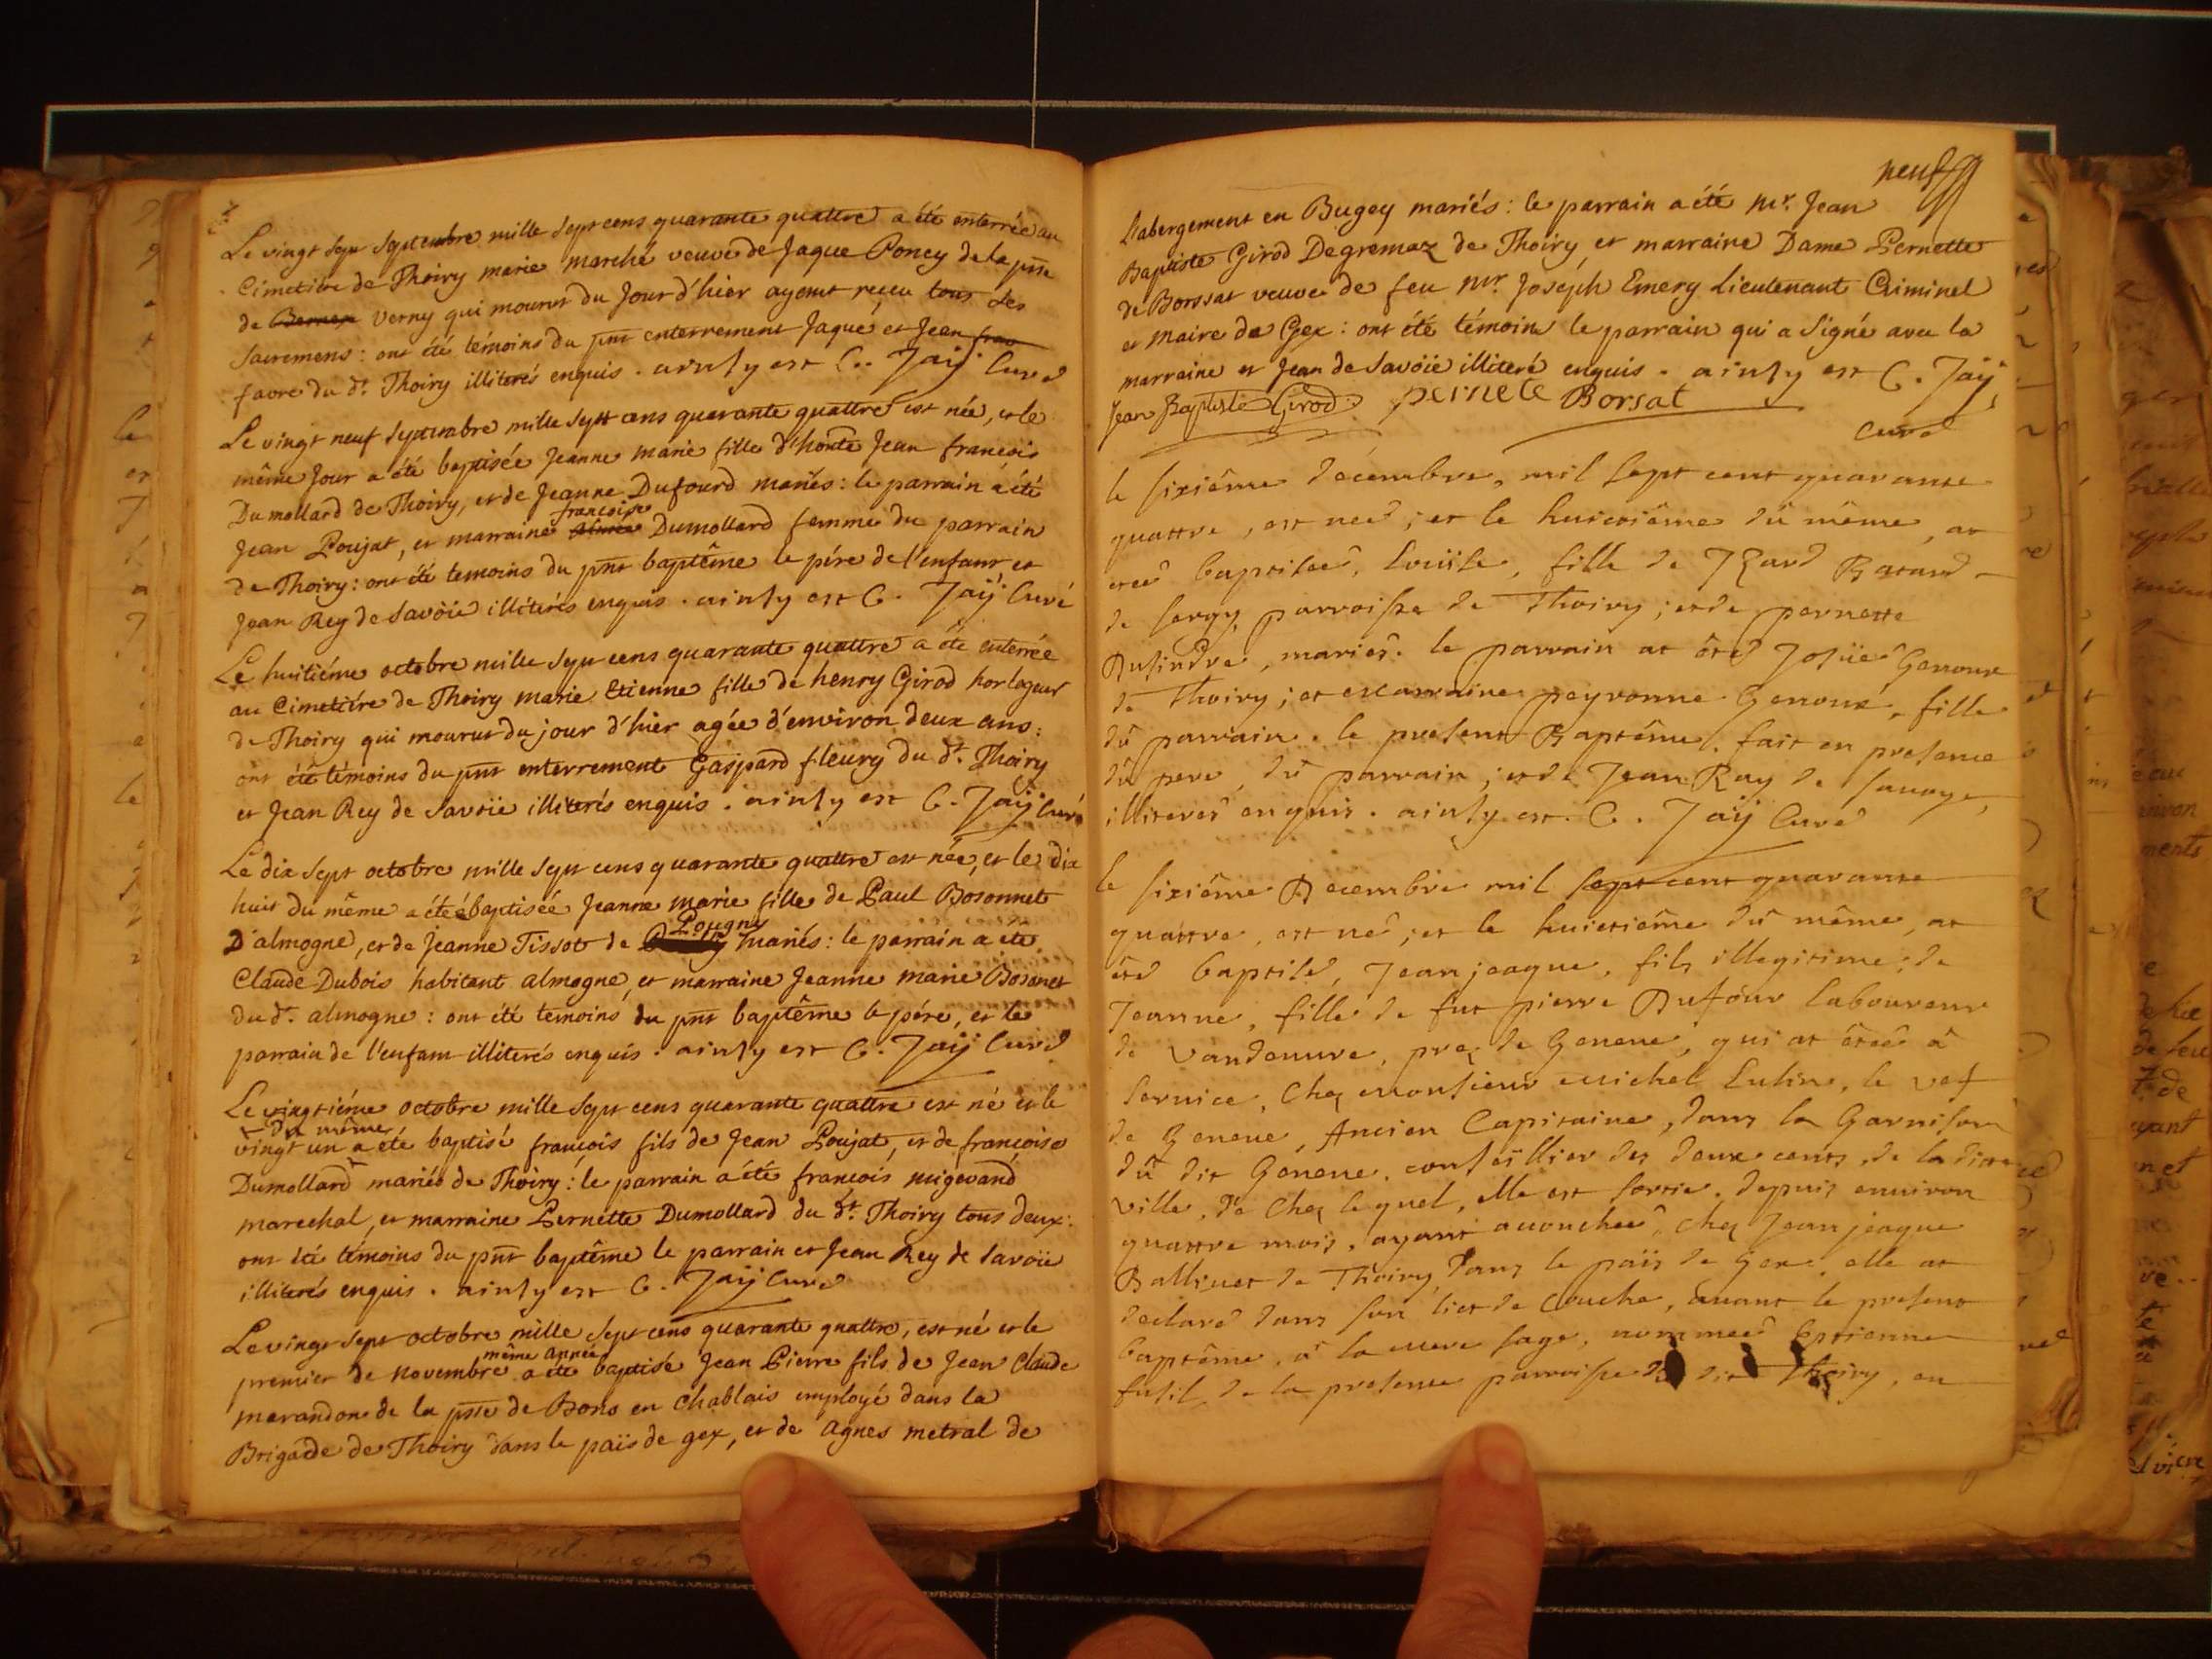 Le vingt sept septembre mille sept cens quarante quattre a été enterrée au
Cimetière de Thoiry marie marché veuve de Jaque Poncy de la pnse
de Verny qui mourut du Jour d'hier ayant reçeu tous les
Sacremens : ont été témoins du pnt enterrement Jaque et Jean fran
favre du dt. Thoiry illiterés enquis . ainsy est C. Jaÿ Curé
Le vingt neuf septembre mille sept cens quarante quattre est née, et le
même Jour a été baptisée Jeanne marie fille d'honte Jean francois
Dumollard de Thoiry, et de Jeanne Dufourd mariés : le parrain a été
francoise
Jean Poujat, et marraine Dumollard femme du parrain
de Thoiry : ont été temoins du pnt baptême le pére de l'enfant et
Jean Rey de Savoïe illiterés enquis . ainsy est C. Jaÿ Curé
Le huitiéme octobre mille sept cens quarante quattre a été enterrée
au Cimetière de Thoiry marie Etienne fille de henry Girod horlogeur
de Thoiry qui mourut du jour d'hier agée d'environ deux ans :
ont été témoins du pnt enterrement Gaspard fleury du dt. Thoiry
et Jean Rey de Savoïe illiterés enquis . ainsy est C. Jaÿ Curé
Le dix sept octobre mille sept cens quarante quattre est née, et le dix
huit du même a été baptisée Jeanne marie fille de Paul Bosonnet
Pougny
D'almogne, et de Jeanne Tissot de mariés : le parrain a été
Claude Dubois habitant almogne, et marraine Jeanne marie Bosonet
du dt. almogne : ont été temoins du pnt baptême le pére, et le
parrain de l'enfant illiterés enquis . ainsy est C. Jaÿ Curé
Le vingtiéme octobre mille sept cens quarante quattre est né et le
du même
vingt un a été baptisé françois fils de Jean Poujat, et de françoise
Dumollard mariés de Thoiry : le parrain a été françois migevand
marechal, et marraine Pernette Dumollard du dt. Thoiry tous deux :
ont été témoins du pnt baptême le parrain et Jean Rey de Savoïe
illiterés enquis . ainsy est C. Jaÿ Curé
Le vingt sept octobre mille sept cens quarante quattre, est né et le
même année
premier de novembre a été baptisé Jean Pierre fils de Jean Claude
marandon de la psse de Bons en Chablais employé dans la
Brigade de Thoiry dans le païs de gex, et de agnes metral de
neuf
L'abergement en Bugey mariés : le parrain a été Mr. Jean
Baptiste Girod Degremaz de Thoiry, et marraine Dame Pernette
de Borssat veuve de feu Mr. Joseph Emery Lieutenant Criminel
et maire de Gex : ont été témoin le parrain qui a signé avec la
marraine et Jean de Savoïe illiteré enquis . ainsy est C. Jaÿ
Jean Baptiste Girod pernete Borsat
Curé
le sixiême décembre, mil sept cent quarante
quattre, est neé ; et le huictiême dû même, at
eteé baptiseé, Louïse, fille de
de sergy, parroisse de Thoiry ; et de pernette
mariés. le parrain at êté Josüé Genoux
de Thoiry ; et marraine peyronne Genoux, fille
dû parrain . le present Baptême, fait en presence
dû pere, dû parrain ; et de Jean Ray de savoye,
illiterés enquis . ainsy est . C . Jaÿ Curé
le sixiême Decembre mil sept cent quarante
quattre, est né ; et le huictiême dû même, at
êté baptisé, Jean jeaque, fils illegitime ; de
Jeanne, fille de fut pierre Dufour laboureur
de Vandeuvre, prez de Geneve, qui at êteé à
service, chez monsieur Michel Lulin, le
de Geneve, Ancien Capitaine, dans la Garnison
dû dit Géneve, conseïllier des deux cents, de la ditte
ville, de chez lequel, elle est sortie, depuis environ
quattre mois, ayant accoucheé, chez Jean jeaque
Balliuet de Thoiry, dans le païs de Gex. elle at
declaré dans son lict de couche, avant le present
baptême, à la mere sage, nommeé Estienne
fusil, de la presente parroisse dit Thoiry, en